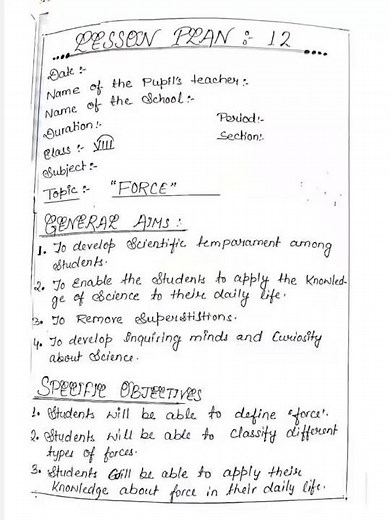 LESSON PLAN :- 12
Date :-
Name of the Pupil's teacher :-
Name of the School :-
Duration :-
Period :-
Class :- VIII
Section :-
Subject :-
Topic :- "FORCE"
GENERAL AIMS :
1. To develop Scientific temparament among
Students.
2. To Enable the Students to apply the Knowled-
ge of Science to their daily life.
3. To Remove Superstistions.
4. To develop Inquiring minds and Curiosity
about Science.
SPECIFIC OBJECTIVES
1. Students will be able to define 'force'.
2. Students will be able to classify different
types of forces.
3. Students will be able to apply their
Knowledge about force in their daily life.